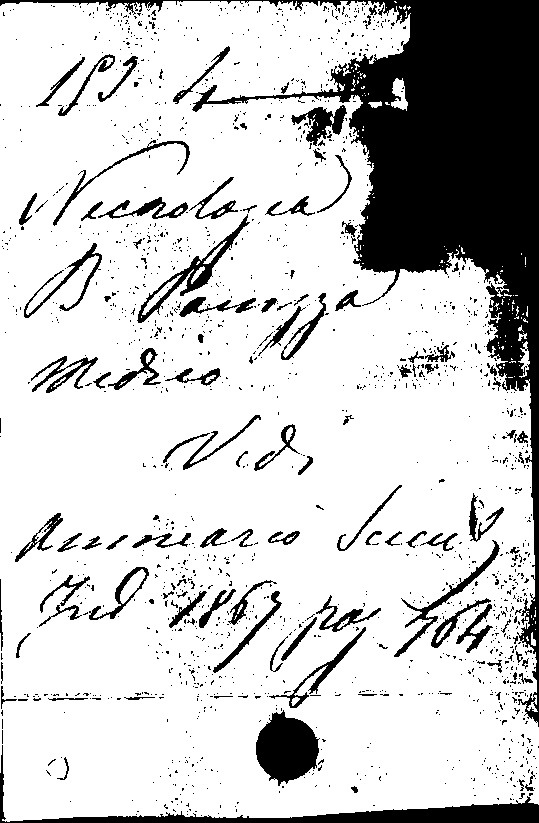 153. 4
Necrologia
B. Panizza
Medico
Vedi
Annuario Scien
Ind. 1867 pag. 764